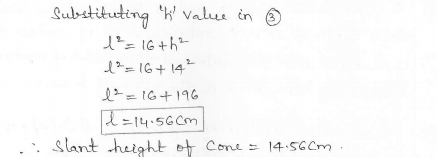 Substituting 'h' value in ③
l² = 16 + h²
l² = 16 + 14²
l² = 16 + 196
l = 14.56 Cm
∴ Slant height of Cone = 14.56 Cm.